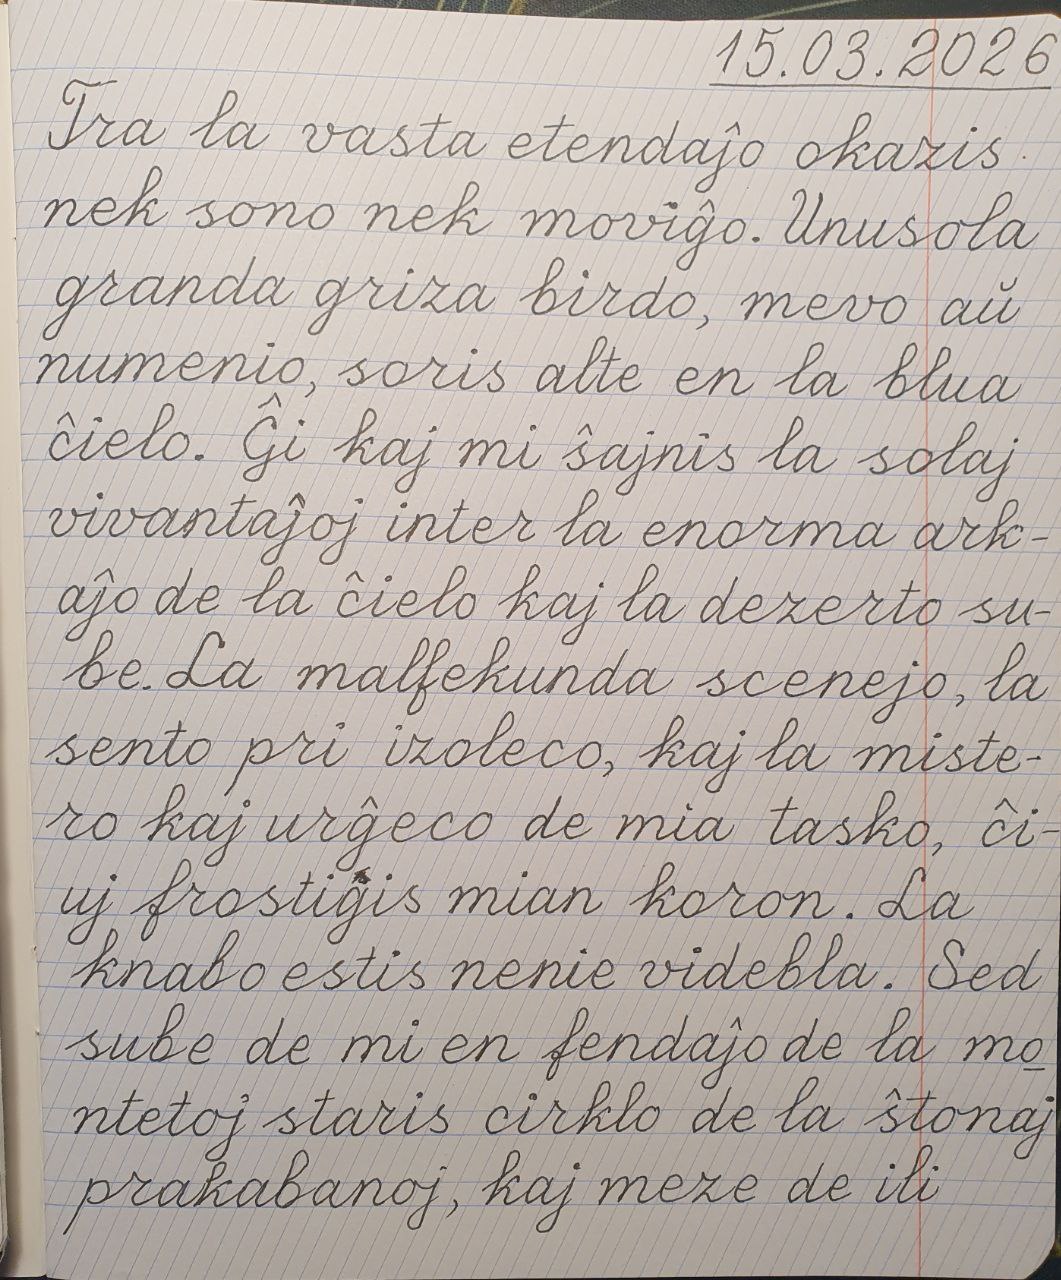 15.03.2026
Tra la vasta etendaĵo okazis
nek sono nek moviĝo. Unusola
granda griza birdo, mevo aŭ
numenio, soris alte en la blua
ĉielo. Ĝi kaj mi ŝajnis la solaj
vivantaĵoj inter la enorma ark-
aĵo de la ĉielo kaj la dezerto su-
be. La malfekunda scenejo, la
sento pri izoleco, kaj la miste-
ro kaj urĝeco de mia tasko, ĉi-
uj frostiĝis mian koron. La
knabo estis nenie videbla. Sed
sube de mi en fendaĵo de la mo
ntetoj staris cirklo de la ŝtonaj
prakabanoj, kaj meze de ili